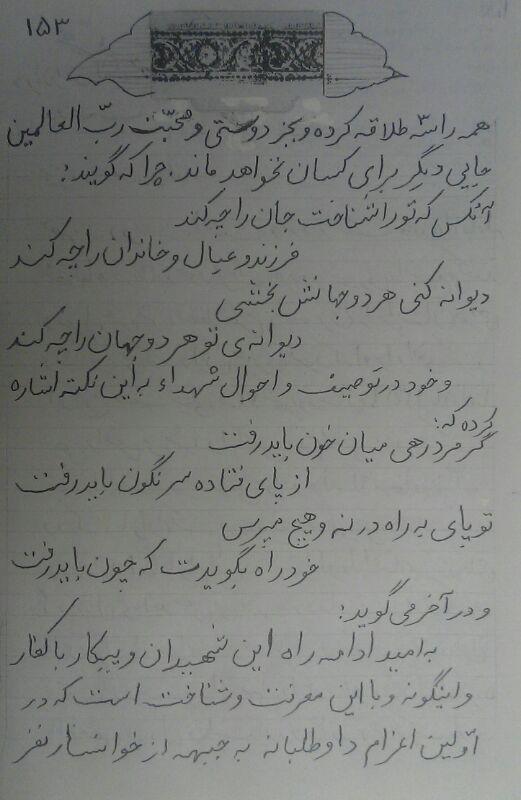 ۱۵۳
همه را سه طلاقه کرده و بجز دوستی و محبّت ربّ العالمین
جایی دیگر برای کسان نخواهد ماند. چرا که گویند:
آنکس که تو را شناخت جان را چه کند
فرزند و عیال و خاندان را چه کند
دیوانه کنی هر دو جهانش بخشی
دیوانه‌ی تو هر دو جهان را چه کند
و خود در توصیف و احوال شهداء به این نکته اشاره
کرده که:
گر مرد رهی میان خون باید رفت
از پای فتاده سرنگون باید رفت
تو پای به راه در نه و هیچ مپرس
خود راه بگویدت که چون باید رفت
و در آخر می گوید:
به امید ادامه راه این شهیدان و پیکار با کفار
و اینگونه و با این معرفت و شناخت است که در
اوّلین اعزام داوطلبانه به جبهه از خوانسار نفر